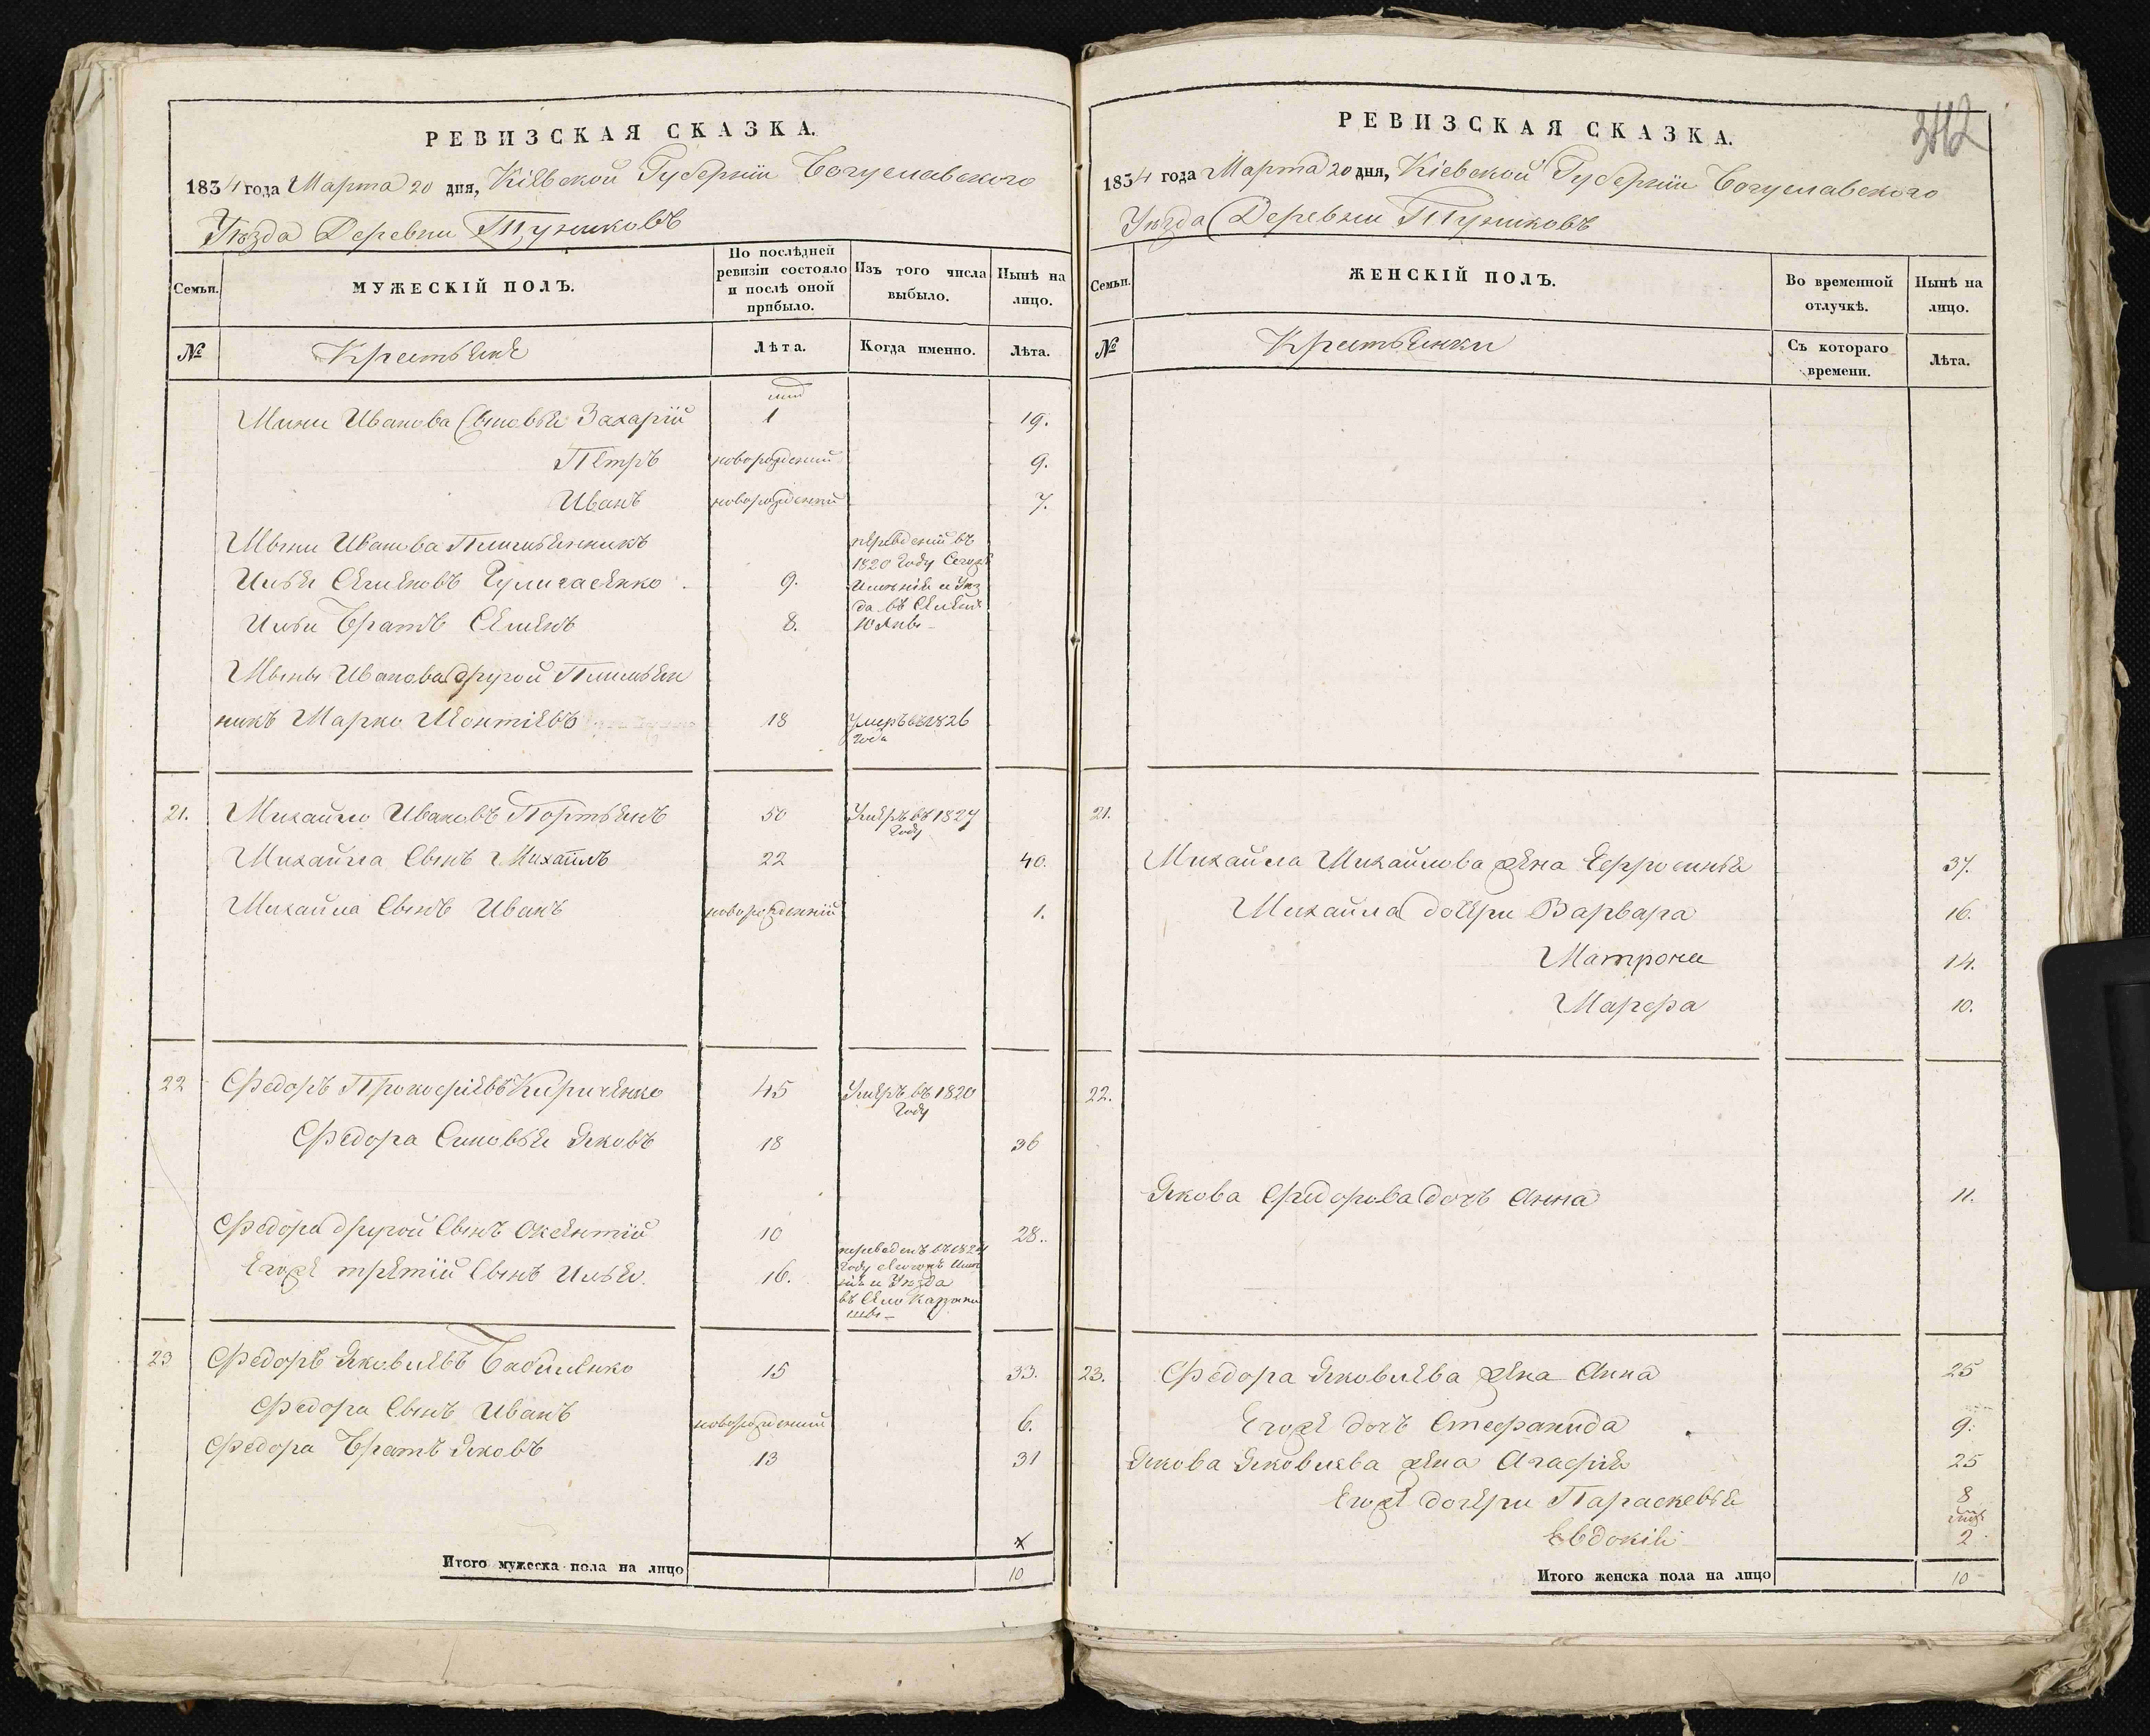 РЕВИЗСКАЯ СКАЗКА.
1834 года Марта 20 дня, Кіевской Губерніи Богуславского
Уѣзда Деревни Туниковъ
Семьи.
МУЖЕСКІЙ ПОЛЪ.
По послѣдней ревизіи состояло и послѣ оной прибыло.
Изъ того числа выбыло.
Нынѣ на лицо.
№
Крестьяне
Лѣта.
Когда именно.
Лѣта.
Ивanова Сыновья Захарій 1 19.
Петръ новорожденный 9.
Иванъ новорожденный 7.
Ивaнова Племянникъ
Илья Семеновъ 9.
переведены въ 1820 году
Ильи Братъ Семенъ 8.
Иванова другой Племян
никъ Марко Леонтіевъ 18 Умеръ въ 1826 года
21. Михайло Ивановъ Портянъ 50 Умеръ въ 1827 году
Михайла Сынъ Михаилъ 22 40.
Михайла Сынъ Иванъ новорожденній 1.
22 Федоръ Прокофіевъ Кириченко 45 Умеръ въ 1820 году
Федора Синовья Яковъ 18 36
Федора другой Сынъ Оксентій 10 28.
Егоже третій Сынъ Илья. 16.
переведенъ въ 1824 году
и Уѣзда
въ Село
23 Федоръ Яковлевъ Бабиленко 15 33.
Федора Сынъ Иванъ новорожденный 6.
Федора Братъ Яковъ 13 31
Итого мужеска пола на лицо 10
342
РЕВИЗСКАЯ СКАЗКА.
1834 года Марта 20 дня, Кіевской Губерніи Богуславского
Уѣзда Деревни Туниковъ
Семьи.
ЖЕНСКІЙ ПОЛЪ.
Во временной отлучкѣ.
Нынѣ на лицо.
№
Крестьянки
Съ котораго времени.
Лѣта.
21.
Михайла Михайлова жена Ефросинья 37.
Михайла дочери Варвара 16.
Матрона 14.
Марфа 10.
22.
Якова Федорова дочъ Анна 11.
23. Федора Яковлева жена Анна 25
Егоже дочъ Стефанида 9.
Якова Яковлева жена Агафія 25
Егоже дочери Параскевья 8
Евдокія 2
Итого женска пола на лицо 10